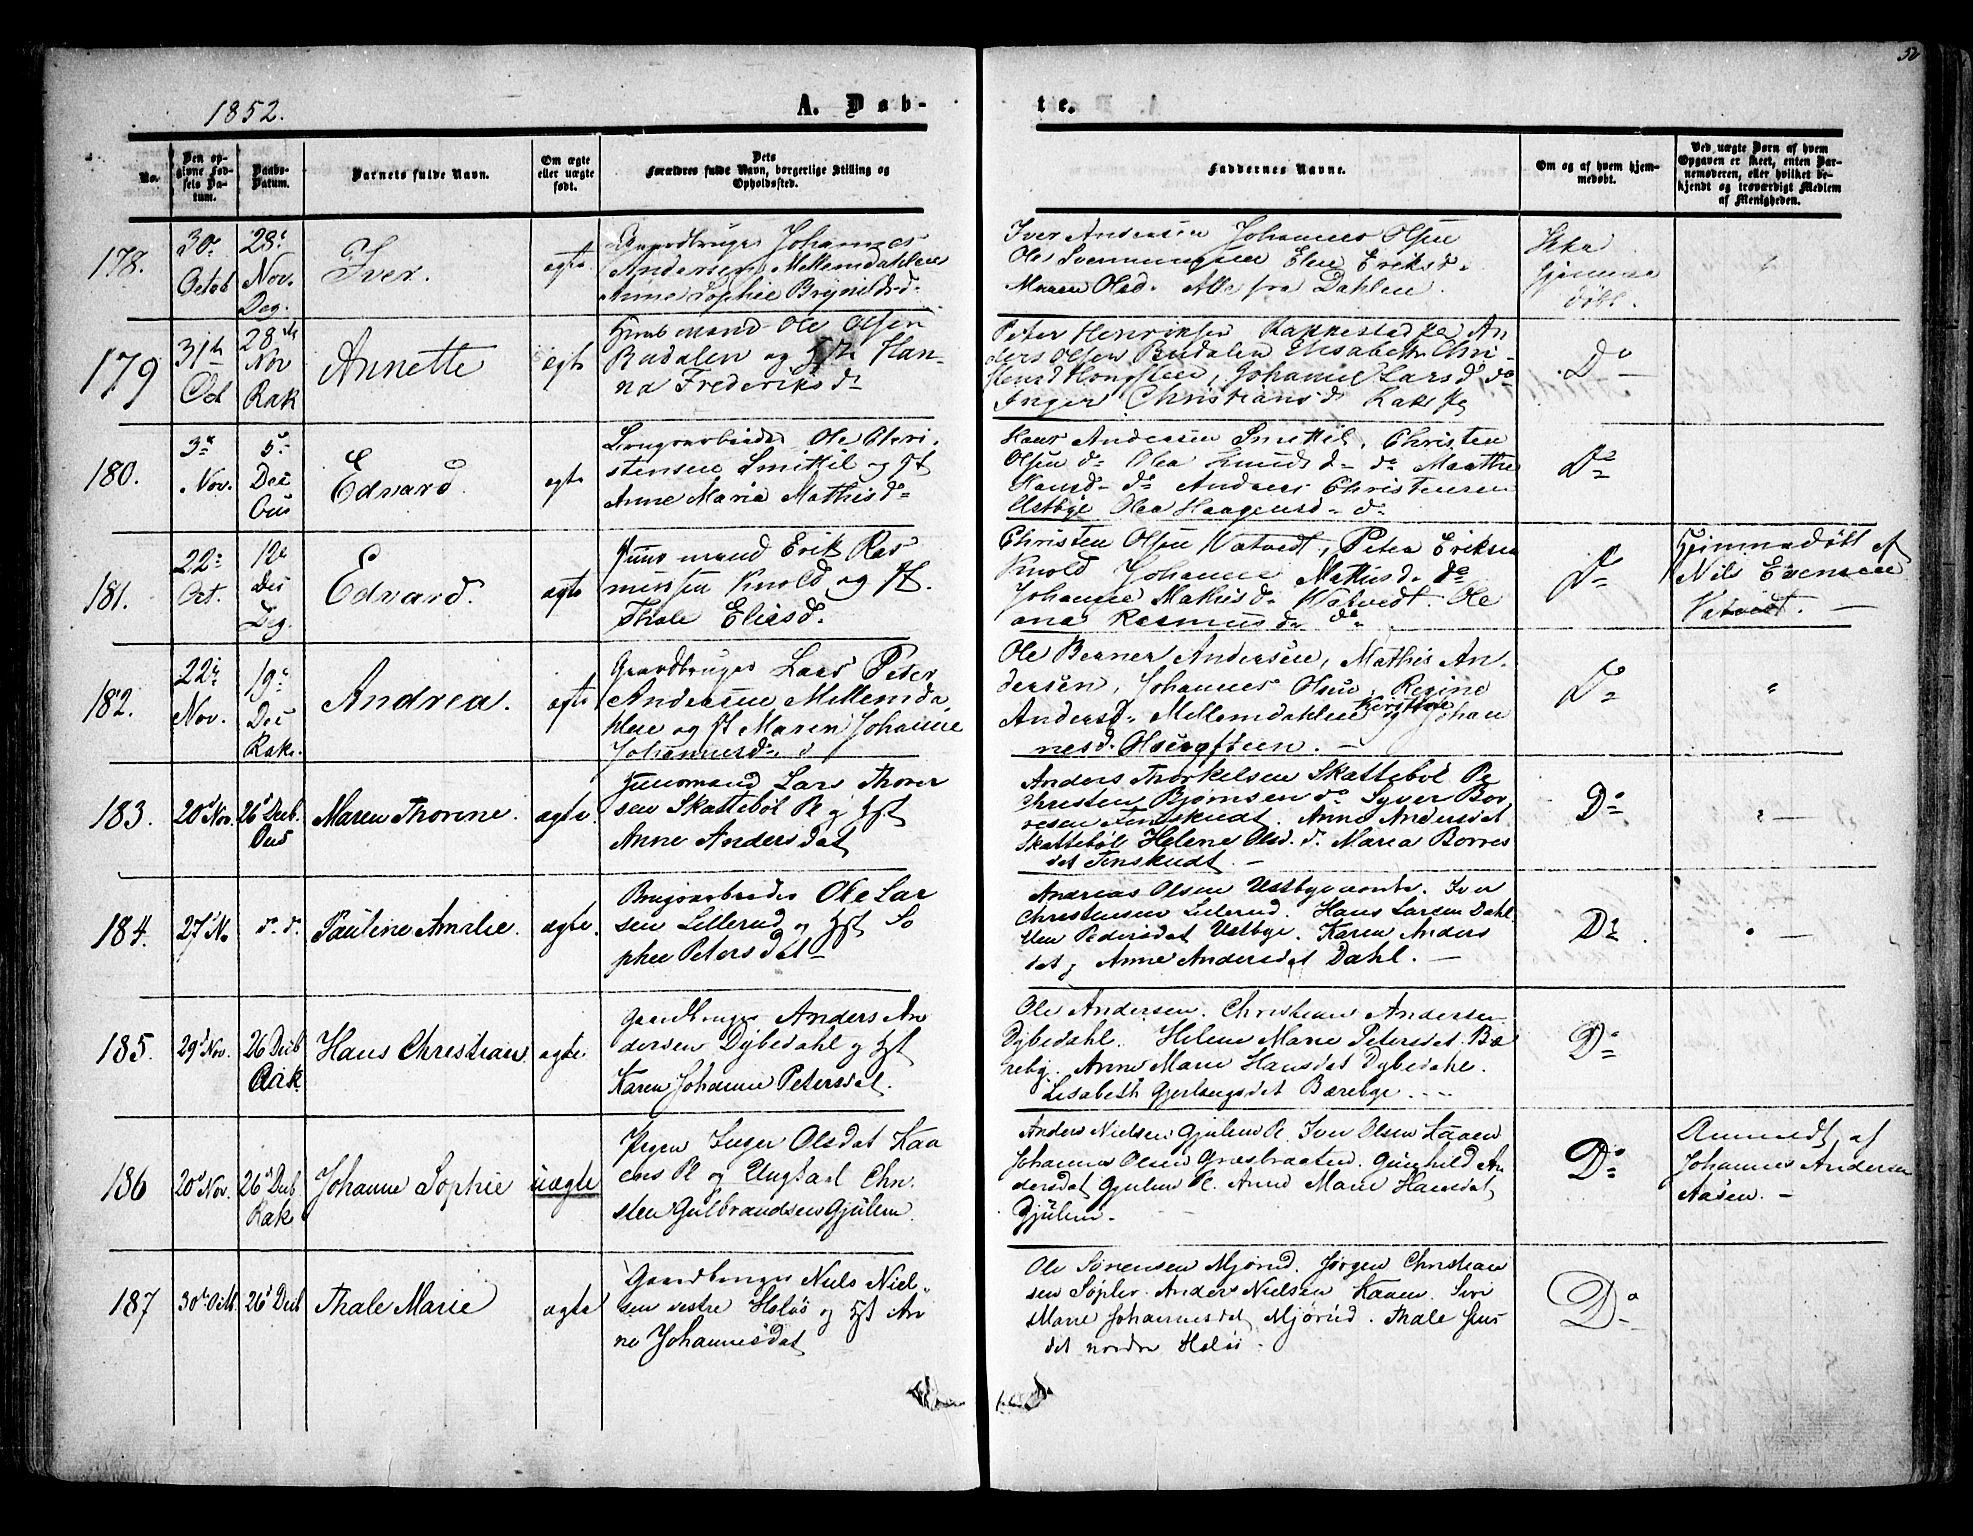 52
1852.
A. Døb-
te.
No.
Den op-
givne Fød-
sels Da-
tum.
Daabs-
Datum.
Barnets fulde Navn.
Om ægte
eller uægte
født.
Dets
Forældres fulde Navn, borgerlige Stilling og
Opholdssted.
Faddernes Navne.
Om og af hvem hjem-
medøbt.
Ved uægte Børn af hvem
Opgaven er skeet, enten Bar-
nemoderen, eller hvilket be-
kjendt og troværdigt Medlem
af Menigheden.
178.
30
Octob
28
Nov.
Deg.
Iver.
ægte
Gaardbruger Johannes
Andersen Mellemdahlen
Anne Sophie Brynildsd.
Iver Andersen Johannes Olsen
Ole Svenningsen Elen Eriksd.
Maren Olsd. Alle fra Dahlen.
Ikke
hjemme
døbt.
179
31te
Oct
28de
Nov
Rak
Annette
ægte
Huusmand Ole Olsen
Budalen og Hst. Han-
na Frederiksd
Peter Henriksen Rakkestad Pg An
ders Olsen Budalen Elisabeth Chri-
Johanne Larsd do
Inger Christiansd Rakk Pg
Do
180.
3
Nov.
5
Dec
Ous
Edvard
ægte
Brugsarbeider Ole Chri-
stensen Smittil og H
Anne Maria Mathisd
Hans Andersen Smittil, Christen
Olsen do Olea Knudsd do Marthe
Hansd do Anders Christensen
Ustbye Olea Haagensd do
Do
181.
22
Oct.
12
Dec
Deg.
Edvard.
ægte
Huusmand Erik Ras
mussen Knold og H.
Thale Eliesd.
Christen Olsen Vatvedt, Peter Eriksen
Knold Johanne Mathisd do
Johanne Mathisd Vatvedt. Ole
ana Rasmusd do
Do
Hjemmedøbt af
Nils Evensen
Vatvedt.
182.
22
Nov.
19
Dec
Rak.
Andrea.
ægte
Gaardbruger Lars Peter
Andersen Mellemda-
hlen og H Maren Johanne
Johannesd
Ole Berner Andersen, Mathis An-
dersen, Johannes Olsen, Regine
Andersd. Mellemdahlen Kirstine og Johan
nesd. Olsengsteen.
Do
"
183.
20' Nov.
26' Decb.
Ous
Maren Thorine.
ægte.
Huusmand Lars Thorer
sen Skattebøl Pl og Hst
Anne Andersdat
Anders Thorkelsen Skattebøl Pl
Christen Bjørnsen do Syver Bor
resen Finskudt. Anne Andersdat
Skattebøl Helene Olsd. d. Maria Borres
dat Finskudt.
Do
"
184.
27' N.
d. d.
Pauline Amalie.
ægte.
Brugsarbeider Ole Lar
sen Lillerud og Hst So
phie Petersdat
Andreas Olsen Ustbye Iver
Christensen Lillerud. Hans Larsen Dahl
Elen Pedersdat Ustbye. Karen Anders
dat, Anne Andersdat Dahl.
Do
"
185.
29' Nov.
26 Decb
Rak
Hans Christian.
ægte.
Gaardbruger Anders An
dersen Dybedahl og Hst
Karen Johanne Petersdat.
Ole Andersen. Christian Andersen
Dybedahl. Helene Marie Petersdat Bæ
reby. Anne Marie Hansdat Dybedahl.
Lisabeth Gjerlaugsdat Bærebye.
Do
186
20' Nov.
26' Decb
Rak
Johanne Sophie
uægte
Pigen Inger Olsdat Kaa
ens Pl og Ungkarl Chri
sten Gulbrandsen Gjulem.
Anders Nielsen Gjulem Pl. Iver Olsen Kaaen
Johannes Olsen Græsbraaten. Gunhild An
dersdat Gjulem Pl. Anne Marie Hansdat
Gjulem.
Do
Anmeldt af
Johannes Andersen
Aasen.
187
30' Oct.
26' Decb
Thale Marie
ægte
Gaardbruger Niels Niel-
sen vestre Holøs og Hst An
ne Johannesdat
Ole Sørensen Mjørud. Jørgen Christian
sen Søpler. Anders Nielsen Kaaen. Siri
Marie Johannesdat Mjørud. Thale
dat nordre Holøs.
Do